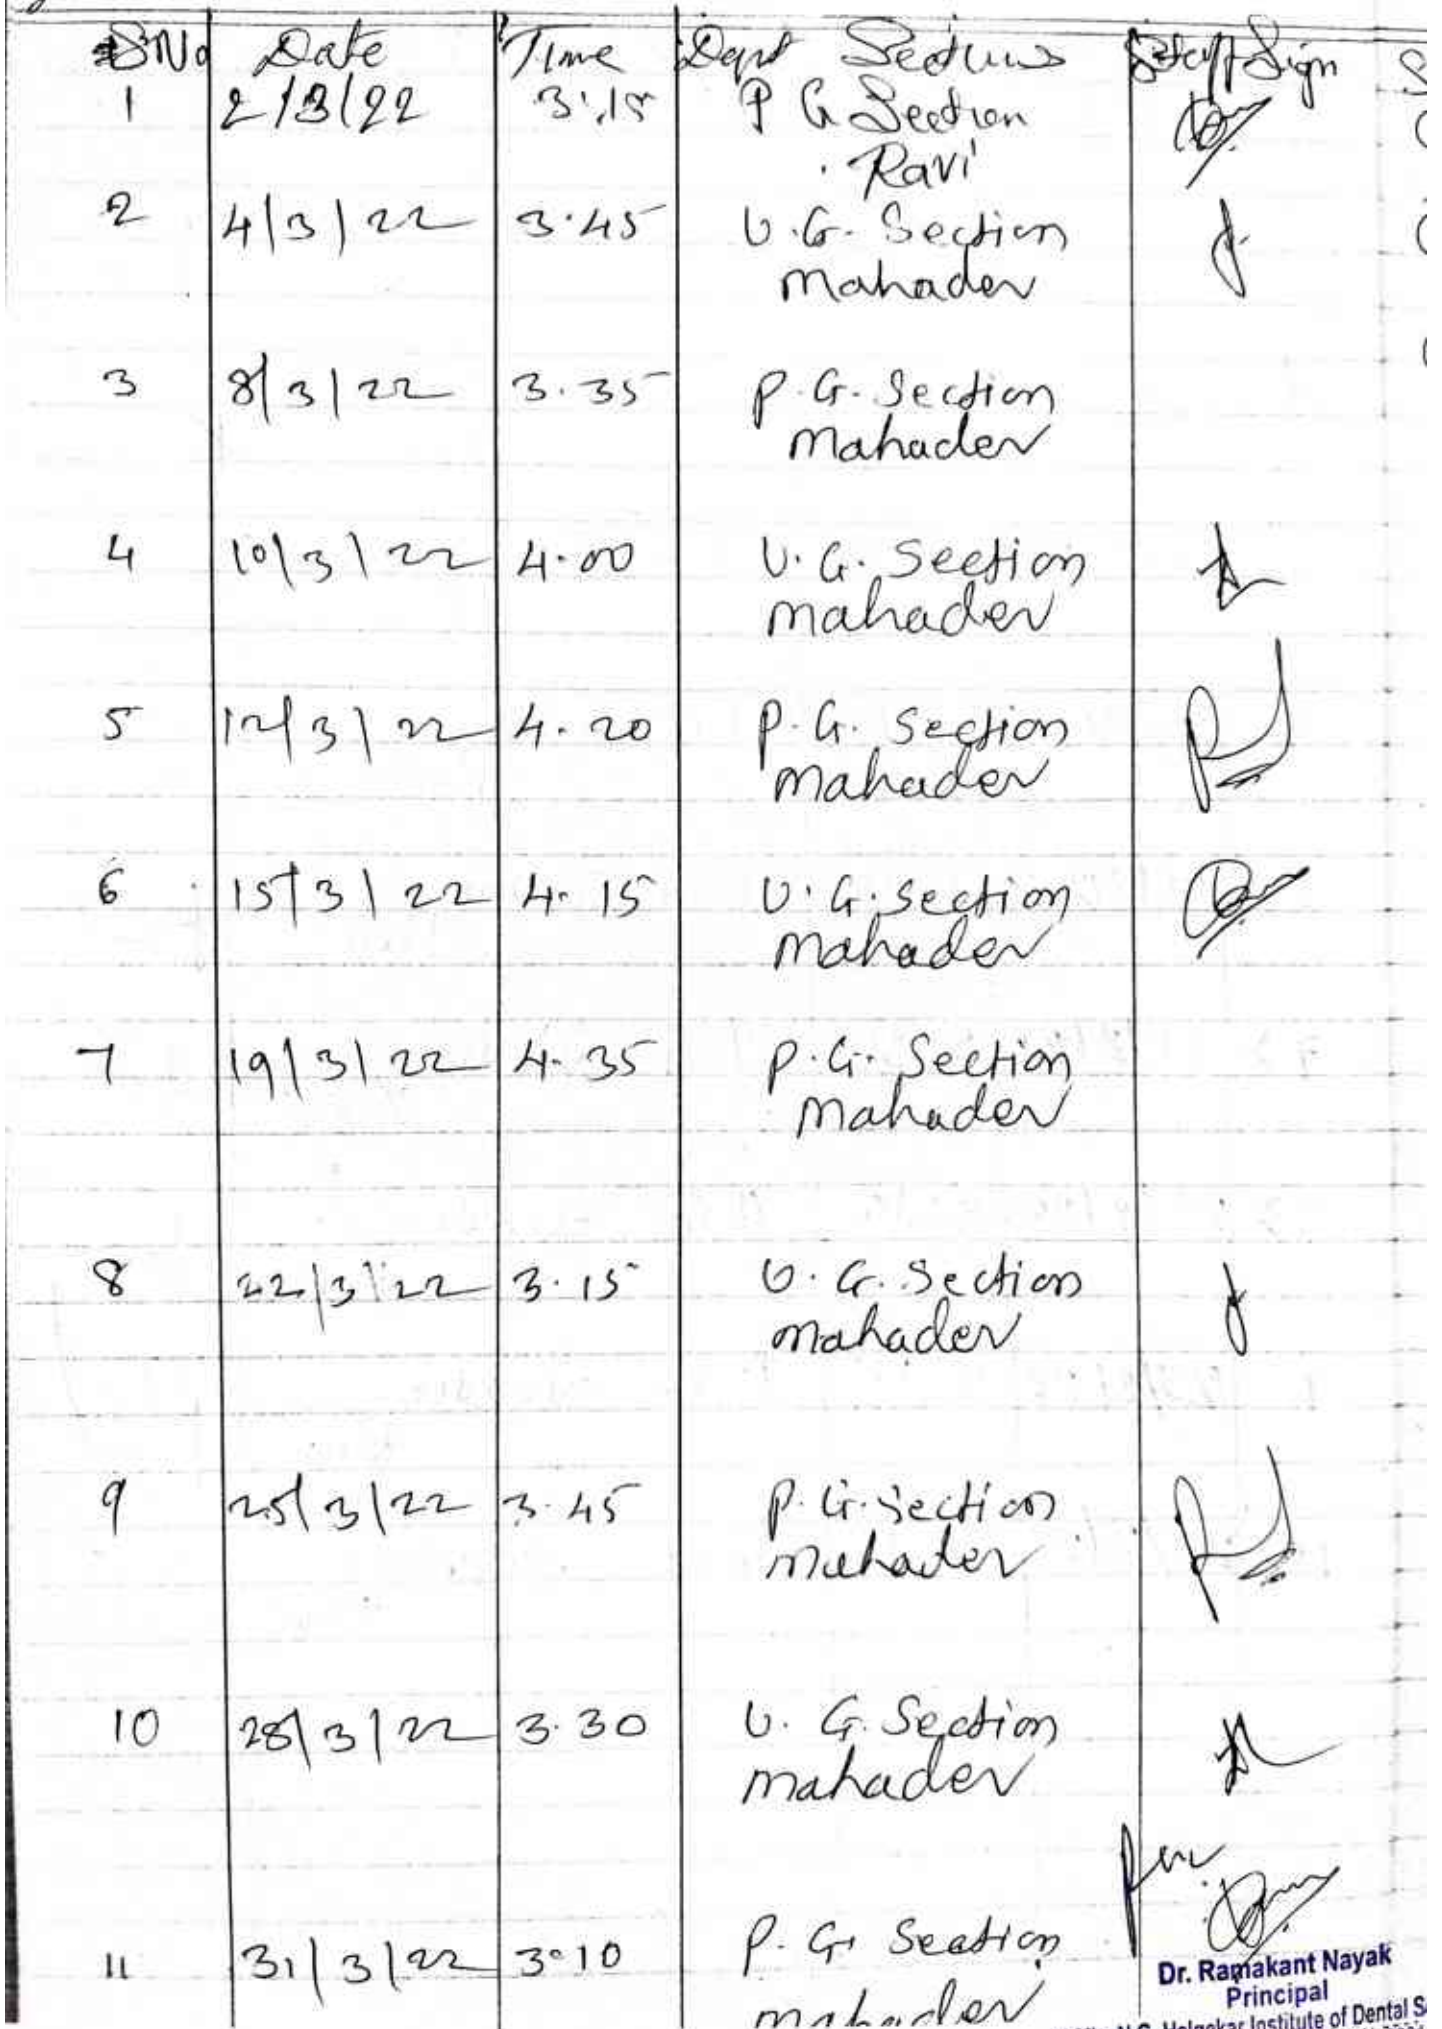 SNo Date Time Dept Sections Staff Sign S
1 2/3/22 3:15 P G Section
Ravi
2 4/3/22 3.45 U.G. Section
mahadev
3 8/3/22 3.35 P.G. Section
mahadev
4 10/3/22 4.00 U.G. Section
mahadev
5 12/3/22 4.20 P.G. Section
mahadev
6 15/3/22 4.15 U.G. Section
mahadev
7 19/3/22 4.35 P.G. Section
mahadev
8 22/3/22 3.15 U.G. Section
mahadev
9 25/3/22 3.45 P.G. Section
mahadev
10 28/3/22 3.30 U.G. Section
mahadev
11 31/3/22 3.10 P.G. Section
mahadev
Dr. Ramakant Nayak
Principal
Institute of Dental S